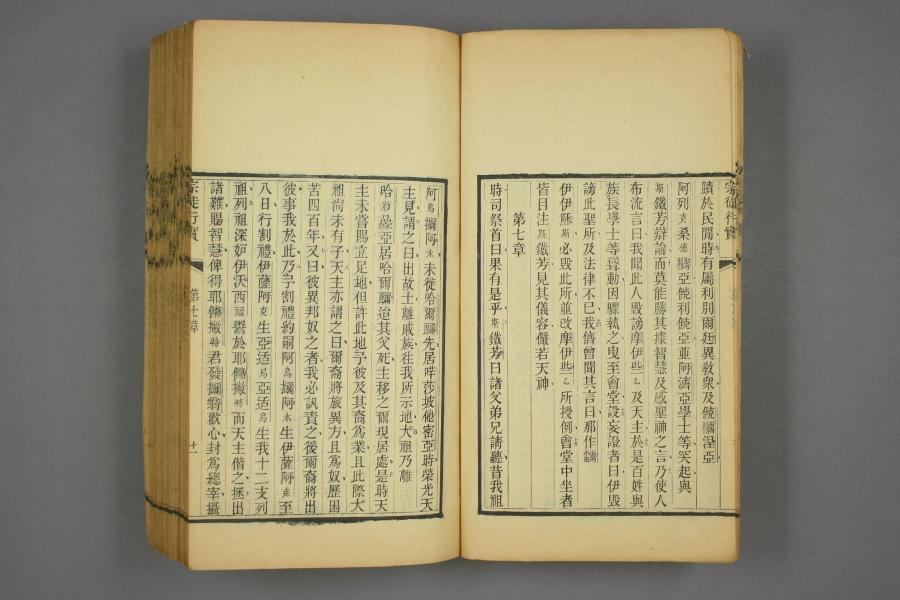 蹟於民間時有屬利別爾廷異敎衆及幾爾涅亞
阿列克桑德穪亞幾利幾亞並阿濟亞學士等突起與
斯鐵芳辯論而莫能勝其據智慧及感聖神之言乃使人
布流言曰我聞此人毀謗摩伊些乙及天主於是百姓與
族長學士等聳動因驟執之曳至會堂設妄證者曰伊毀
謗此聖所及法律不已我儕曾聞其言曰那作爾
伊伊穌斯必毀此所並改摩伊些乙所授例會堂中坐者
皆目注斯鐵芳見其儀容儼若天神
第七章
時司祭首曰果有是乎斯鐵芳曰諸父弟兄請聽昔我祖
阿烏攔阿木未徙哈爾爾先居哶莎坡他密亞時榮光天
主見謂之曰出故土離戚族往我所示地大祖乃離
哈勒亞居哈爾爾迨其父死主移之爾現居處是時天
主未嘗賜立足地但許此地予彼及其裔爲業且此際大
祖尚未有子天主亦謂之曰爾裔將旅異方且爲奴歷困
苦四百年又曰彼異邦奴之者我必訊責之後爾裔將出
彼事我於此乃予割禮約嗣阿烏攔阿木生伊薩阿克至
八日行割禮伊薩阿克生亞适烏亞适烏生我十二支列
祖列祖深妒伊沃西福鬻於耶撤特而天主偕之拯出
諸難賜智慧俾得耶撤特君發攔翁歡心封爲總宰攝
宗徒行實
第七章
十一